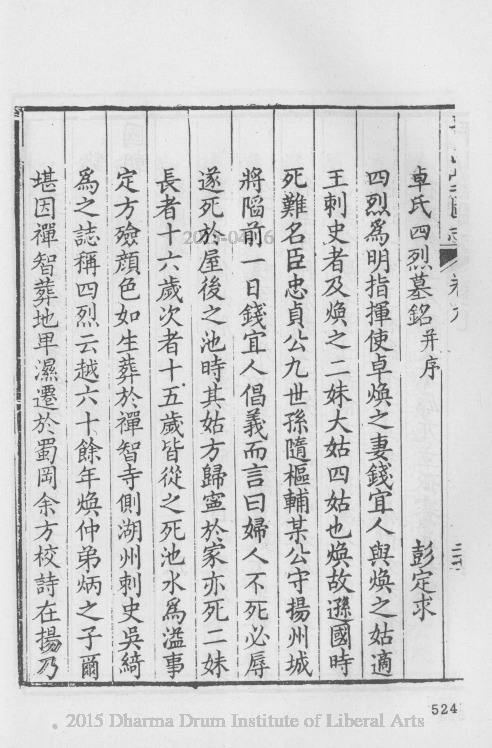 卓氏四烈墓銘并序 彭定求
四烈為明指揮使卓煥之妻錢宜人與煥之姑適
王刺史者及煥之二妹大姑四姑也煥故遜國時
死難名臣忠貞公九世孫隨樞輔某公守揚州城
將陷前一日錢宜人倡義而言曰婦人不死必辱
遂死於屋後之池時其姑方歸寧於家亦死二妹
長者十六歲次者十五歲皆從之死池水為溢事
定方殮顏色如生葬於禪智寺側湖州刺史吳綺
為之誌稱四烈云越六十餘年煥仲弟炳之子爾
堪因禪智葬地卑濕遷於蜀岡余方校詩在揚乃
524
2015 Dharma Drum Institute of Liberal Arts